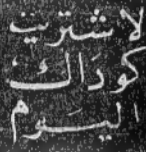 لاشتريت
كوداك
اليوم